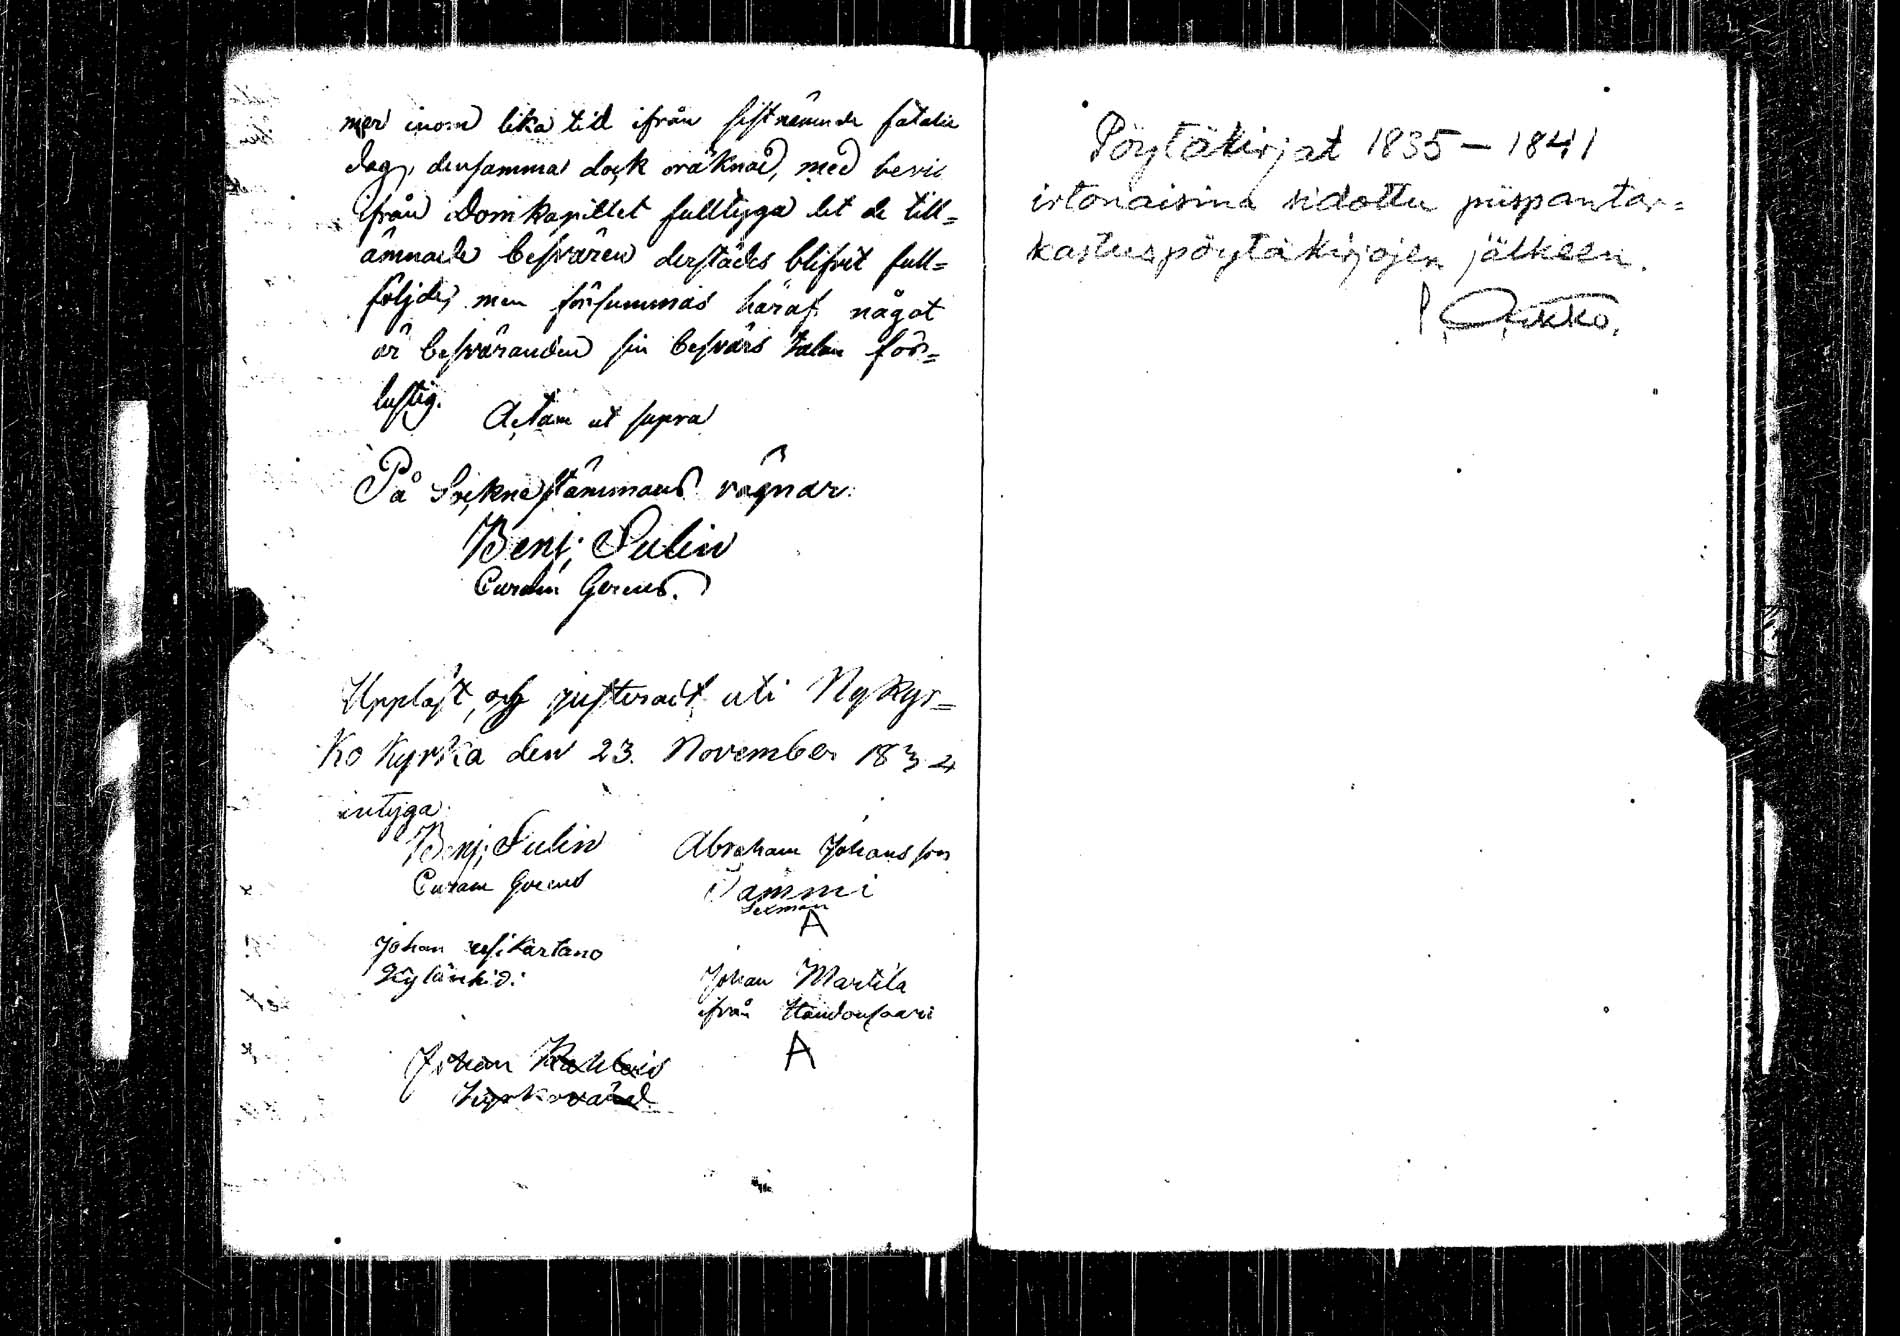 mer inom lika tid ifrån sistnämnde fatalie
dag, densamma dock oräknad, med bevis
ifrån Domkapitlet fulltyga det de till=
ämnade besvären derstädes blifvit full=
följde; men försummas häraf något
är besväranden sin besvärs talan för=
lustig.
Actum ut supra
På Sockne stämmans vägnar:
Benj: Sulin
Curam Gerens.
Uppläst, och justeradt uti Nykyr=
ko kyrka den 23. November 1834
intyga
Benj: Sulin
Curam Gerens
Abraham Johansson
Tammi
Sexman
A
Johan
Johan Martila
ifrån
A
Johan
Kyrkovärd
Pöytäkirjat 1835 — 1841
irtonaisina sidottu piispantar=
kastuspöytäkirjojen jälkeen.